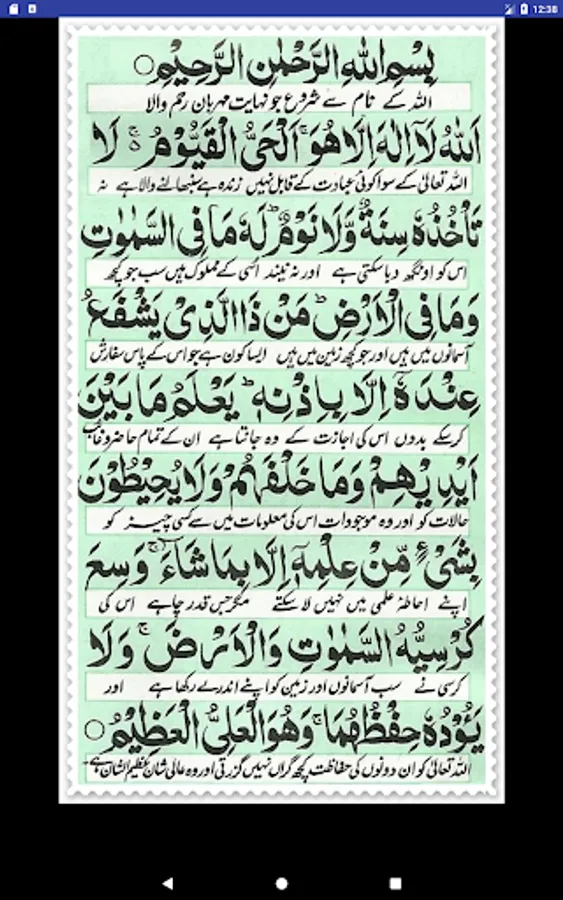 12:38
بِسْمِ اللّٰهِ الرَّحْمٰنِ الرَّحِيْمِ ○
اللہ کے نام سے شروع جو نہایت مہربان رحم والا
اَللّٰهُ لَاۤ اِلٰهَ اِلَّا هُوَ ۚ اَلْحَیُّ الْقَیُّوْمُ ۚ۬ لَا
اللہ تعالیٰ کے سوا کوئی عبادت کے قابل نہیں زندہ ہے سنبھالنے والا ہے نہ
تَاْخُذُهٗ سِنَةٌ وَّلَا نَوْمٌ ؕ لَهٗ مَا فِی السَّمٰوٰتِ
اس کو اونگھ دبا سکتی ہے اور نہ نیند اُسی کے مملوک ہیں سب جو کچھ
وَمَا فِی الْاَرْضِ ؕ مَنْ ذَا الَّذِیْ یَشْفَعُ
آسمانوں میں ہیں اور جو کچھ زمین میں ہیں ایسا کون ہے جو اس کے پاس سفارش
عِنْدَهٗۤ اِلَّا بِاِذْنِهٖ ؕ یَعْلَمُ مَا بَیْنَ
کر سکے بدوں اس کی اجازت کے وہ جانتا ہے ان کے تمام حاضر و غائب
اَیْدِیْهِمْ وَمَا خَلْفَهُمْ ۚ وَلَا یُحِیْطُوْنَ
حالات کو اور وہ موجودات اس کی معلومات میں سے کسی چیز کو
بِشَیْءٍ مِّنْ عِلْمِهٖۤ اِلَّا بِمَا شَآءَ ۚ وَسِعَ
اپنے احاطۂ علمی میں نہیں لا سکتے مگر جس قدر چاہے اس کی
كُرْسِیُّهُ السَّمٰوٰتِ وَالْاَرْضَ ۚ وَلَا
کرسی نے سب آسمانوں اور زمین کو اپنے اندر لے رکھا ہے اور
یَـُٔوْدُهٗ حِفْظُهُمَا ۚ وَهُوَ الْعَلِیُّ الْعَظِیْمُ ○
اللہ تعالیٰ کو ان دونوں کی حفاظت کچھ گراں نہیں گزرتی اور وہ عالی شان عظیم الشان ہے۔